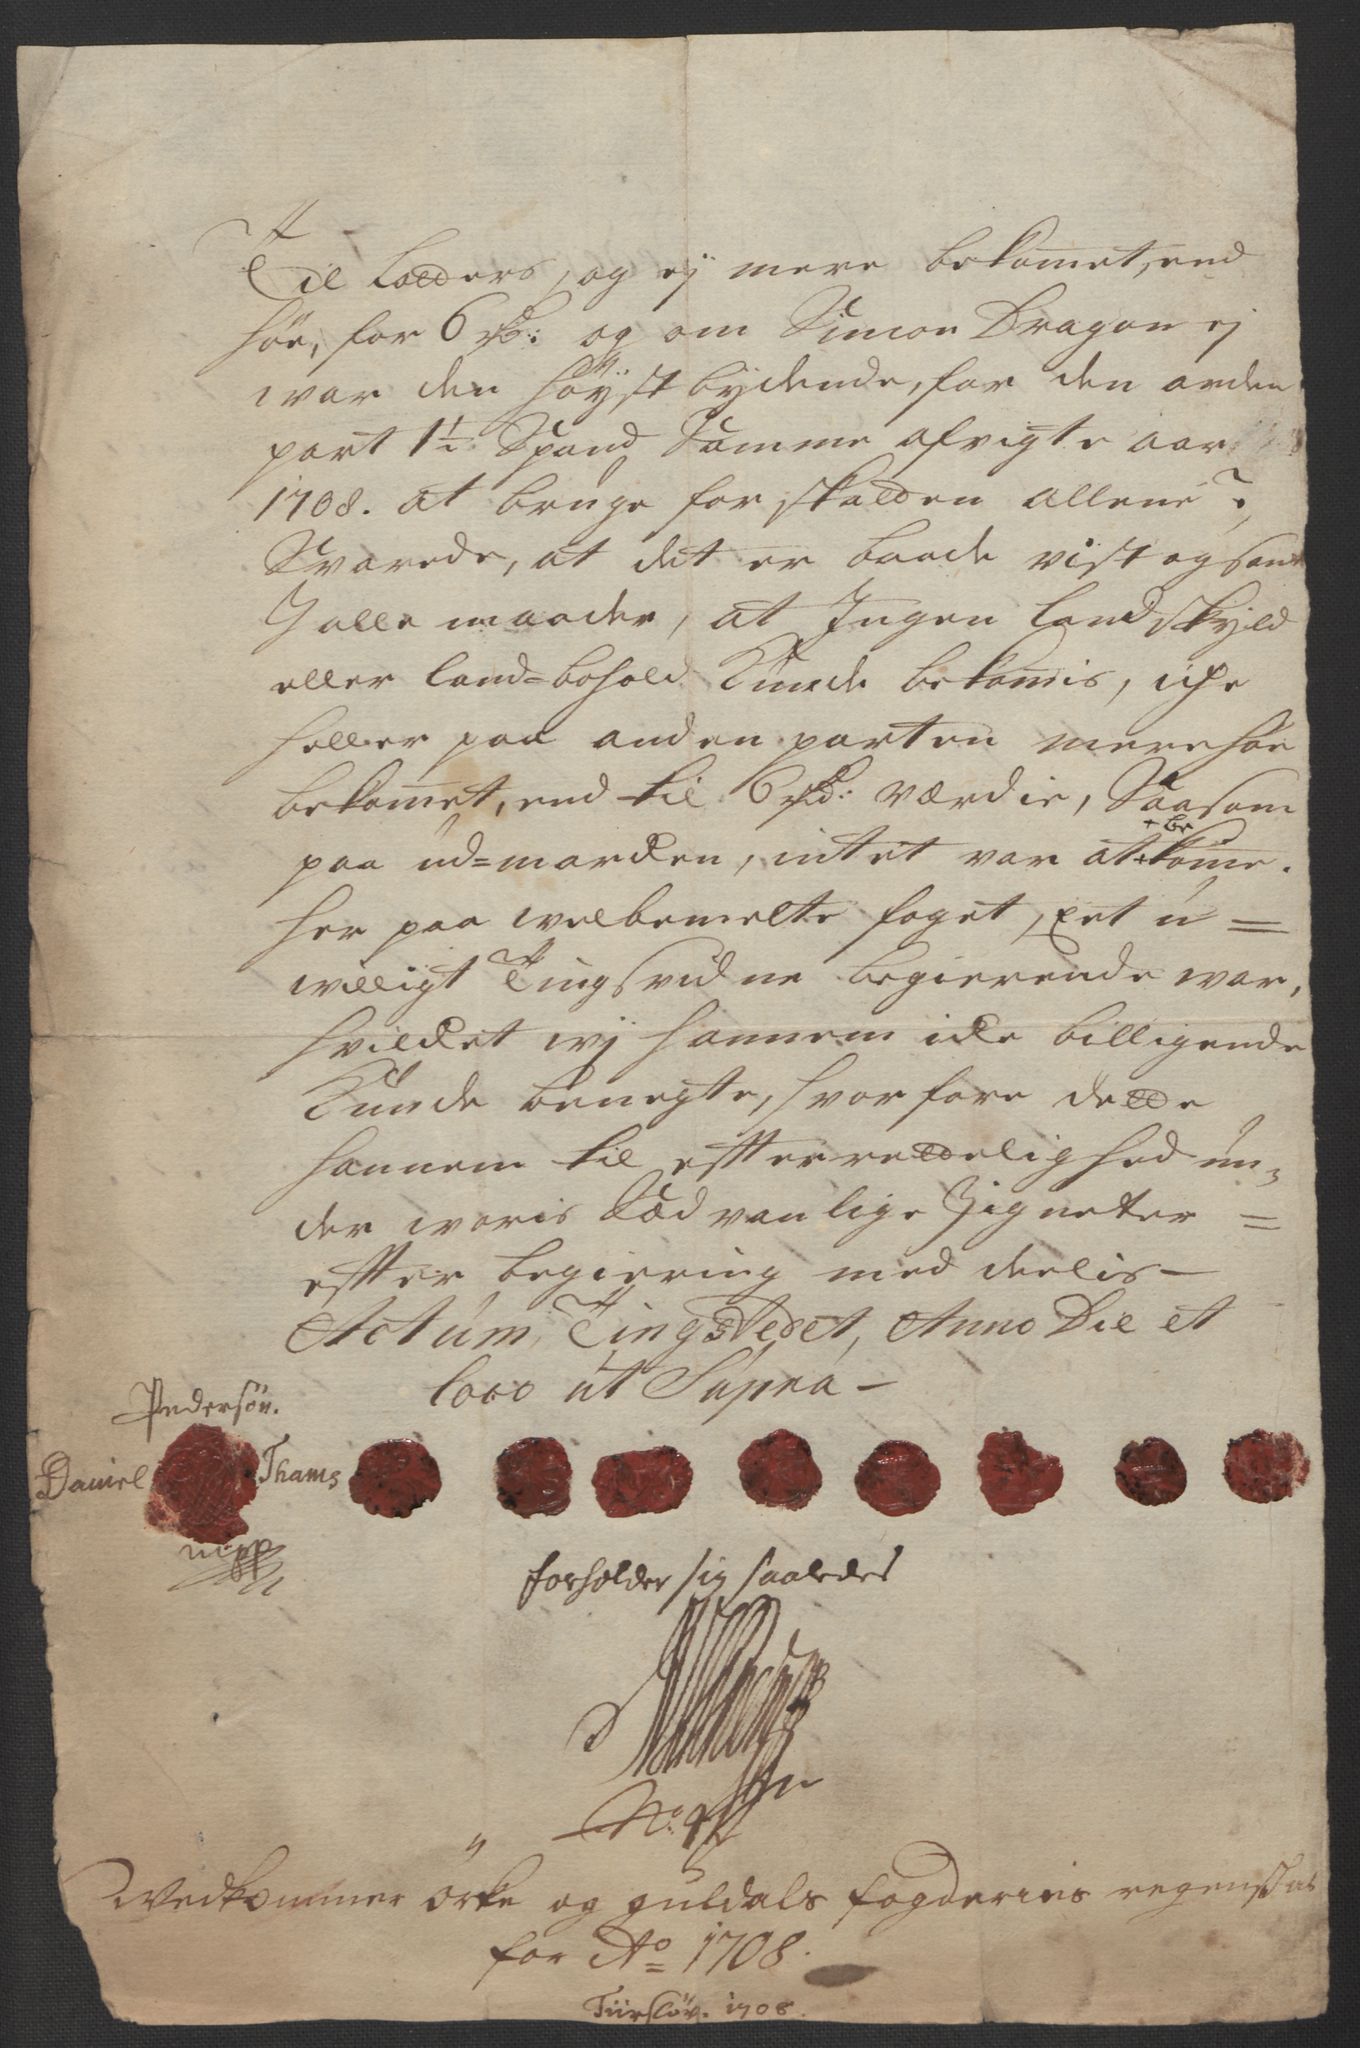 Til Lodders, og ej mere bekomet, end
høe, for 6 rd: og om Simon Dragon ej
war den höÿst bÿdende, for den anden
part 1½ Spand Samme afvigte aar
1708. at bruge for skatten allene?
Svarede, at det er baade vist og sant
J alle maader, at Ingen landskÿld
eller land=bohold Kunde bekomis, iche
heller paa anden parten mere høe
bekomet, end til 6 rd: værdie, Saasom
paa ud=marcken, intet var at bekome.
her paa welbemelte foget, et u=
villigt Tingsvidne begierende war,
hvilcket wÿ hannem icke billigende
Kunde benegte, hvorfore dette
hannem til efterrettelighed un-
der woris Sædvanlige Zigneter =
efter begiering med deelis-
Actum Tingstedet, Anno Die et
loco ut Supra-
Pedersøn.
Daniel Thams
mpp
forholder sig saaledes
No:
Wedkommer örke og guldals fogderies regenskab
for Ao 1708.
1708.